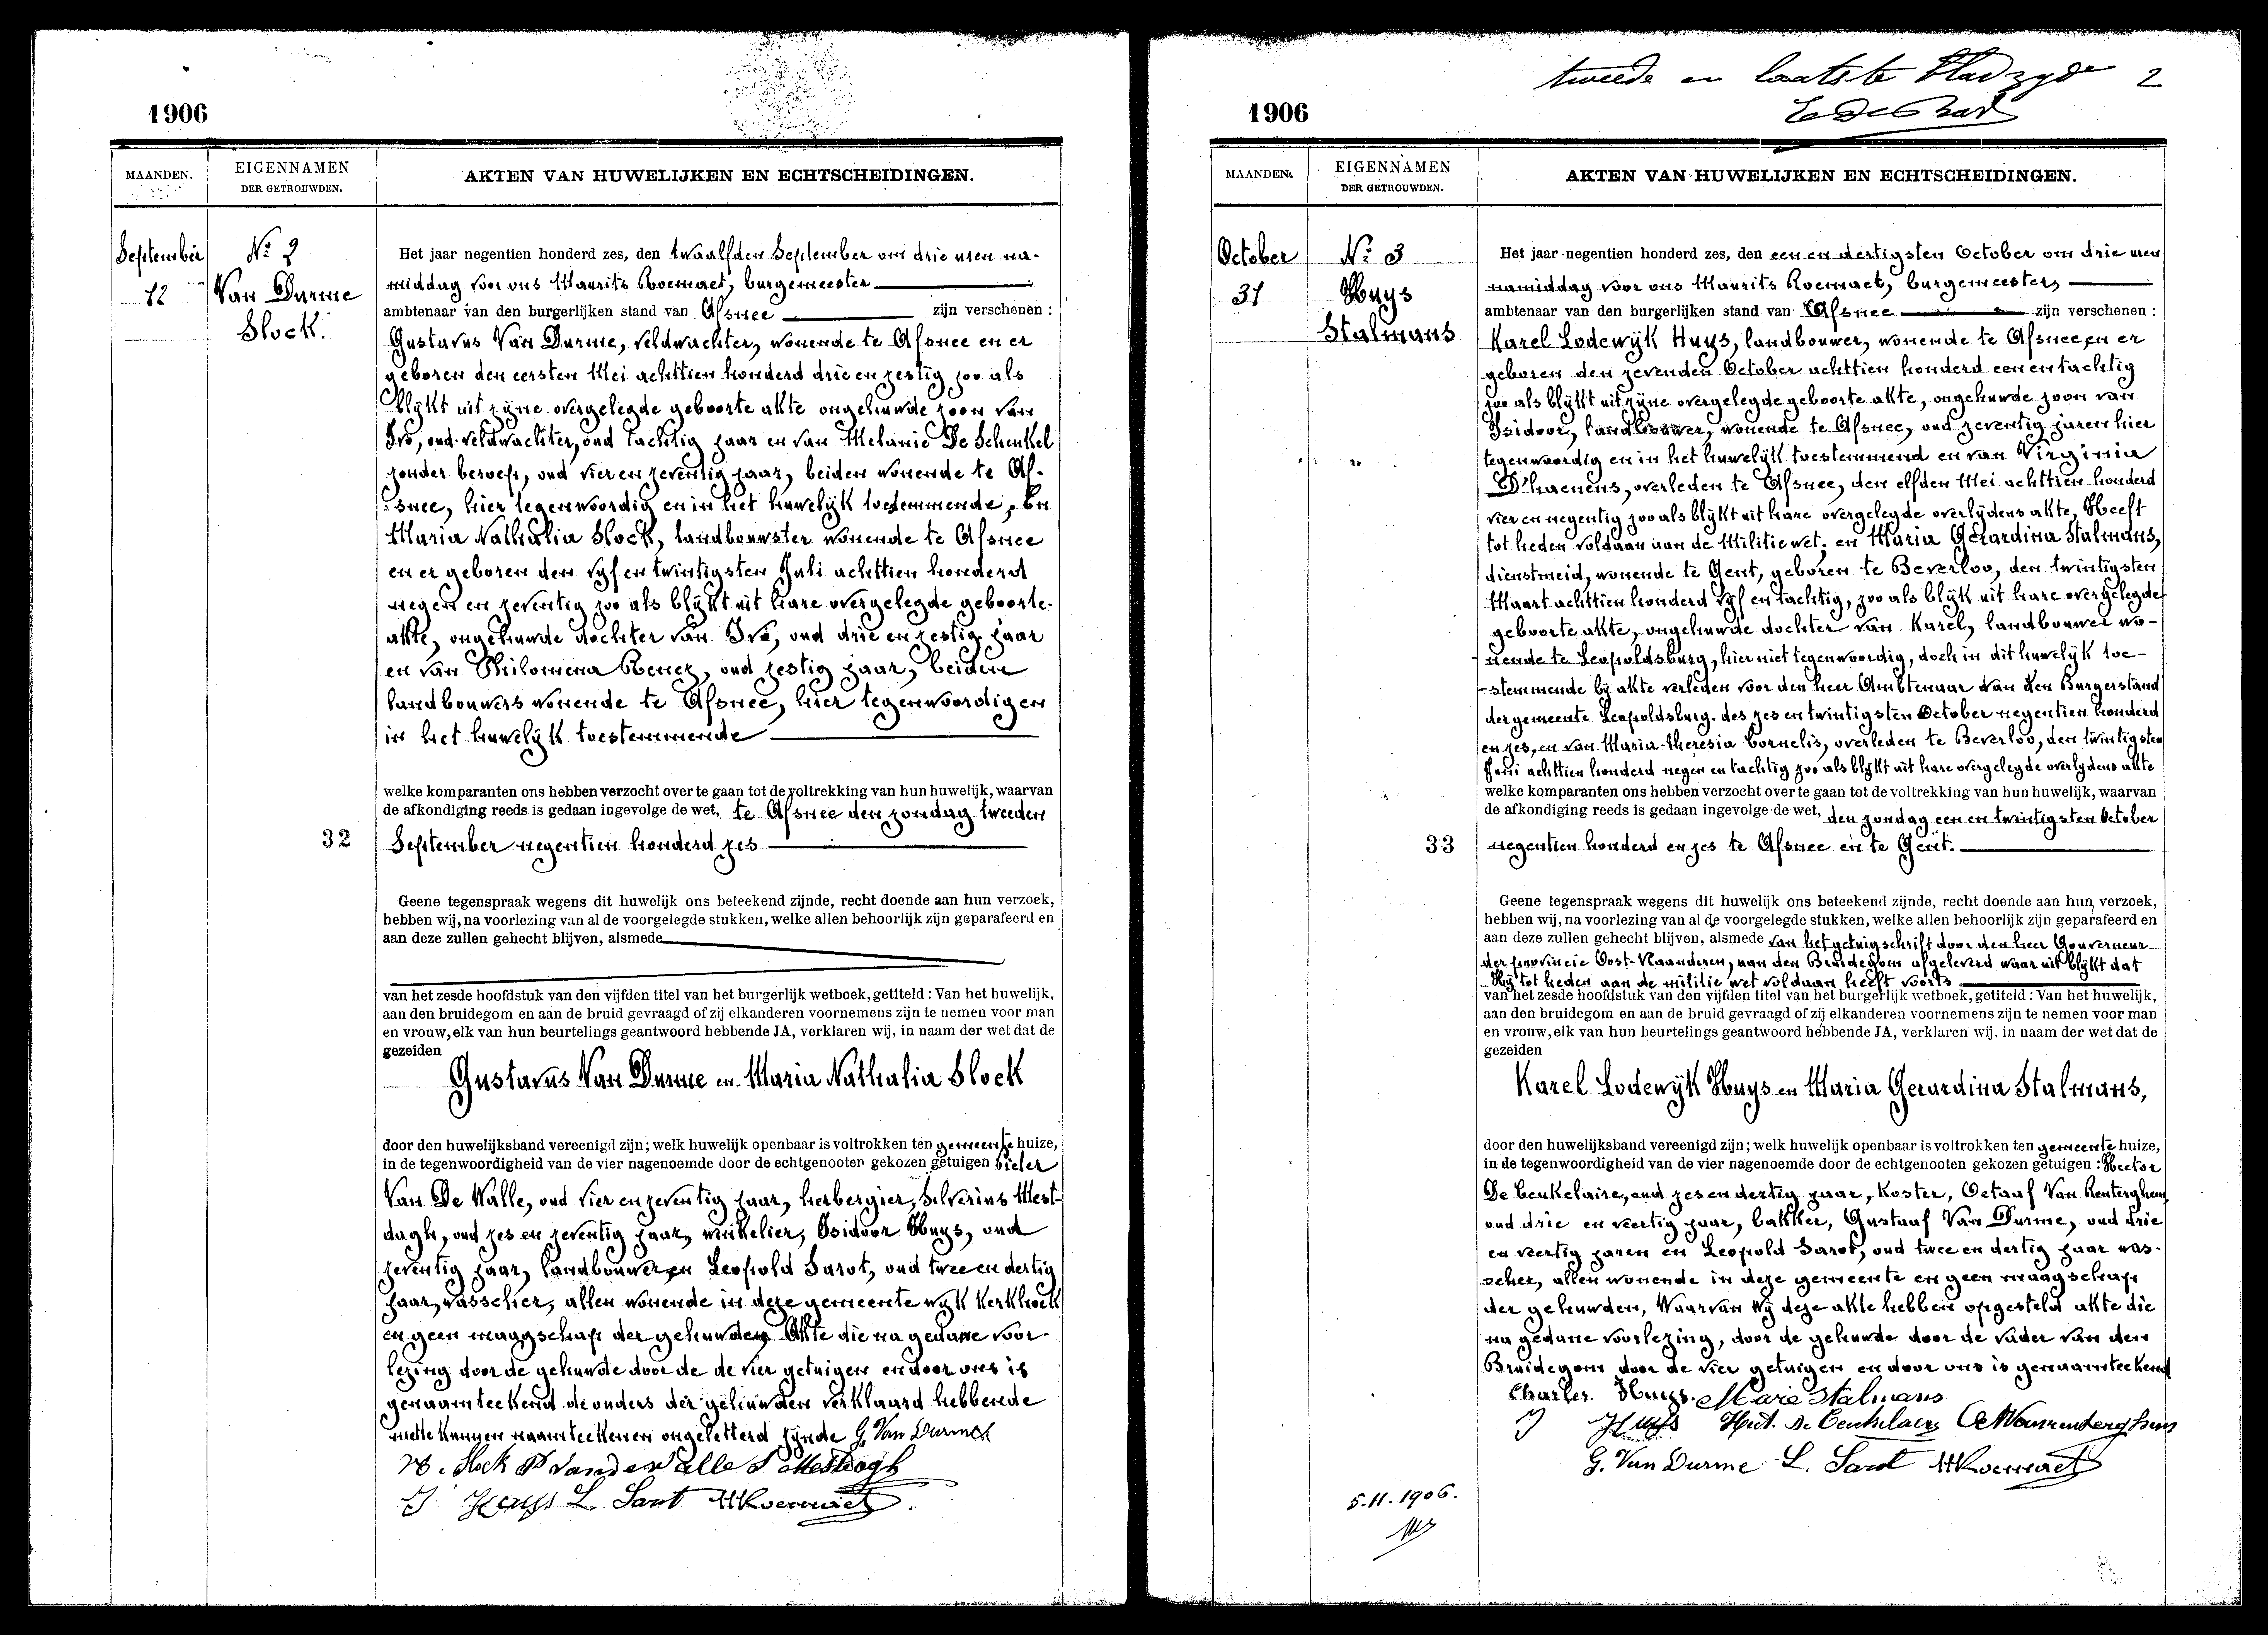 1906
MAANDEN.
EIGENNAMEN
DER GETROUWDEN.
AKTEN VAN HUWELIJKEN EN ECHTSCHEIDINGEN.
September
12
Nº 2
Van Durme
Slock.
Het jaar negentien honderd zes, den twaalfden September om drie uren na-
middag voor ons Maurits Roermaet, burgemeester
ambtenaar van den burgerlijken stand van Afsnee zijn verschenen :
Gustavus Van Durme, veldwachter, wonende te Afsnee en er
geboren den eersten Mei achttien honderd drie en zestig zoo als
blijkt uit zijne overgelegde geboorte akte ongehuwde zoon van
Ivo, oud-veldwachter, oud tachtig jaar en van Melanie De Schenkel
zonder beroep, oud vier en zeventig jaar, beiden wonende te Af-
snee, hier tegenwoordig en in het huwelijk toestemmende, En
Maria Nathalia Slock, landbouwster wonende te Afsnee
en er geboren den vijf en twintigsten Juli achttien honderd
negen en zeventig zoo als blijkt uit hare overgelegde geboorte-
akte, ongehuwde dochter van Ivo, oud drie en zestig jaar
en van Philomena, oud zestig jaar, beiden
landbouwers wonende te Afsnee, hier tegenwoordig en
in het huwelijk toestemmende
welke komparanten ons hebben verzocht over te gaan tot de voltrekking van hun huwelijk, waarvan
de afkondiging reeds is gedaan ingevolge de wet, te Afsnee den zondag tweeden
32
September negentien honderd zes
Geene tegenspraak wegens dit huwelijk ons beteekend zijnde, recht doende aan hun verzoek,
hebben wij, na voorlezing van al de voorgelegde stukken, welke allen behoorlijk zijn geparafeerd en
aan deze zullen gehecht blijven, alsmede
van het zesde hoofdstuk van den vijfden titel van het burgerlijk wetboek, getiteld : Van het huwelijk,
aan den bruidegom en aan de bruid gevraagd of zij elkanderen voornemens zijn te nemen voor man
en vrouw, elk van hun beurtelings geantwoord hebbende JA, verklaren wij, in naam der wet dat de
gezeiden
Gustavus Van Durme en Maria Nathalia Slock
door den huwelijksband vereenigd zijn; welk huwelijk openbaar is voltrokken ten gemeente huize,
in de tegenwoordigheid van de vier nagenoemde door de echtgenooten gekozen getuigen Pieter
Van De Walle, oud vier en zeventig jaar, herbergier, Silverius Mest-
dagh, oud zes en zeventig jaar, winkelier, Isidoor Huys, oud
zeventig jaar, landbouwer en Leopold Sarot, oud twee en dertig
jaar, wasscher, allen wonende in deze gemeente wijk Kerkhoek
en geen maagschap der gehuwden, Akte die na gedane voor-
lezing door de gehuwde door de de vier getuigen en door ons is
genaamteekend de ouders der gehuwden verklaard hebbende
niet te kunnen naamteekenen ongeletterd zijnde G. Van Durme
Slock P Vandewalle S Mestdagh
I Huys L. Sarot MRoermaet
tweede en laatste bladzyde 2
1906
MAANDEN.
EIGENNAMEN
DER GETROUWDEN.
AKTEN VAN HUWELIJKEN EN ECHTSCHEIDINGEN.
October
31
Nº 3
Huys
Stalmans
Het jaar negentien honderd zes, den een en dertigsten October om drie uren
namiddag voor ons Maurits Roermaet, burgemeester,
ambtenaar van den burgerlijken stand van Afsnee zijn verschenen :
Karel Lodewijk Huys, landbouwer, wonende te Afsnee en er
geboren den zevenden October achttien honderd een en tachtig
zoo als blijkt uit zijne overgelegde geboorte akte, ongehuwde zoon van
Isidoor, landbouwer, wonende te Afsnee, oud zeventig jaren hier
tegenwoordig en in het huwelijk toestemmend en van Virginia
D'haenens, overleden te Afsnee, den elfden Mei achttien honderd
vier en negentig zoo als blijkt uit hare overgelegde overlijdens akte, Heeft
tot heden voldaan aan de Militiewet; en Maria Gerardina Stalmans,
dienstmeid, wonende te Gent, geboren te Beverloo, den twintigsten
Maart achttien honderd vijf en tachtig, zoo als blijk uit hare overgelegde
geboorte akte, ongehuwde dochter van Karel, landbouwer wo-
nende te Leopoldsburg, hier niet tegenwoordig, doch in dit huwelijk toe-
-stemmende bij akte verleden voor den heer Ambtenaar van den Burgerstand
der gemeente Leopoldsburg. des zes en twintigsten October negentien honderd
en zes, en van Maria-Theresia Cornelis, overleden te Beverloo, den twintigsten
Juni achttien honderd negen en tachtig zoo als blijkt uit hare overgelegde overlydens akte
welke komparanten ons hebben verzocht over te gaan tot de voltrekking van hun huwelijk, waarvan
de afkondiging reeds is gedaan ingevolge de wet, den zondag een en twintigsten October
33
negentien honderd en zes te Afsnee en te Gent.
Geene tegenspraak wegens dit huwelijk ons beteekend zijnde, recht doende aan hun verzoek,
hebben wij, na voorlezing van al de voorgelegde stukken, welke allen behoorlijk zijn geparafeerd en
aan deze zullen gehecht blijven, alsmede van het getuigschrift door den heer Gouverneur
der provincie Oost-Vlaanderen, aan den Bruidegom afgeleverd waar uit blijkt dat
Hij tot heden aan de militie wet voldaan heeft voorts
van het zesde hoofdstuk van den vijfden titel van het burgerlijk wetboek, getiteld : Van het huwelijk,
aan den bruidegom en aan de bruid gevraagd of zij elkanderen voornemens zijn te nemen voor man
en vrouw, elk van hun beurtelings geantwoord hebbende JA, verklaren wij, in naam der wet dat de
gezeiden
Karel Lodewijk Huys en Maria Gerardina Stalmans,
door den huwelijksband vereenigd zijn; welk huwelijk openbaar is voltrokken ten gemeente huize,
in de tegenwoordigheid van de vier nagenoemde door de echtgenooten gekozen getuigen : Hector
De Ceukelaire, oud zes en dertig jaar, Koster, Octaaf Van Renterghem,
oud drie en veertig jaar, bakker, Gustaaf Van Durme, oud drie
en veertig jaren en Leopold Sarot, oud twee en dertig jaar was-
scher, allen wonende in deze gemeente en geen maagschap
der gehuwden, Waarvan wij deze akte hebben opgesteld akte die
na gedane voorlezing, door de gehuwde door de vader van den
Bruidegom door de vier getuigen en door ons is genaamteekend
Charles. Huys. Marie Stalmans
I Huys Hect. De Ceukelaire
G. Van Durme L. Sarot MRoermaet
5.11.1906.